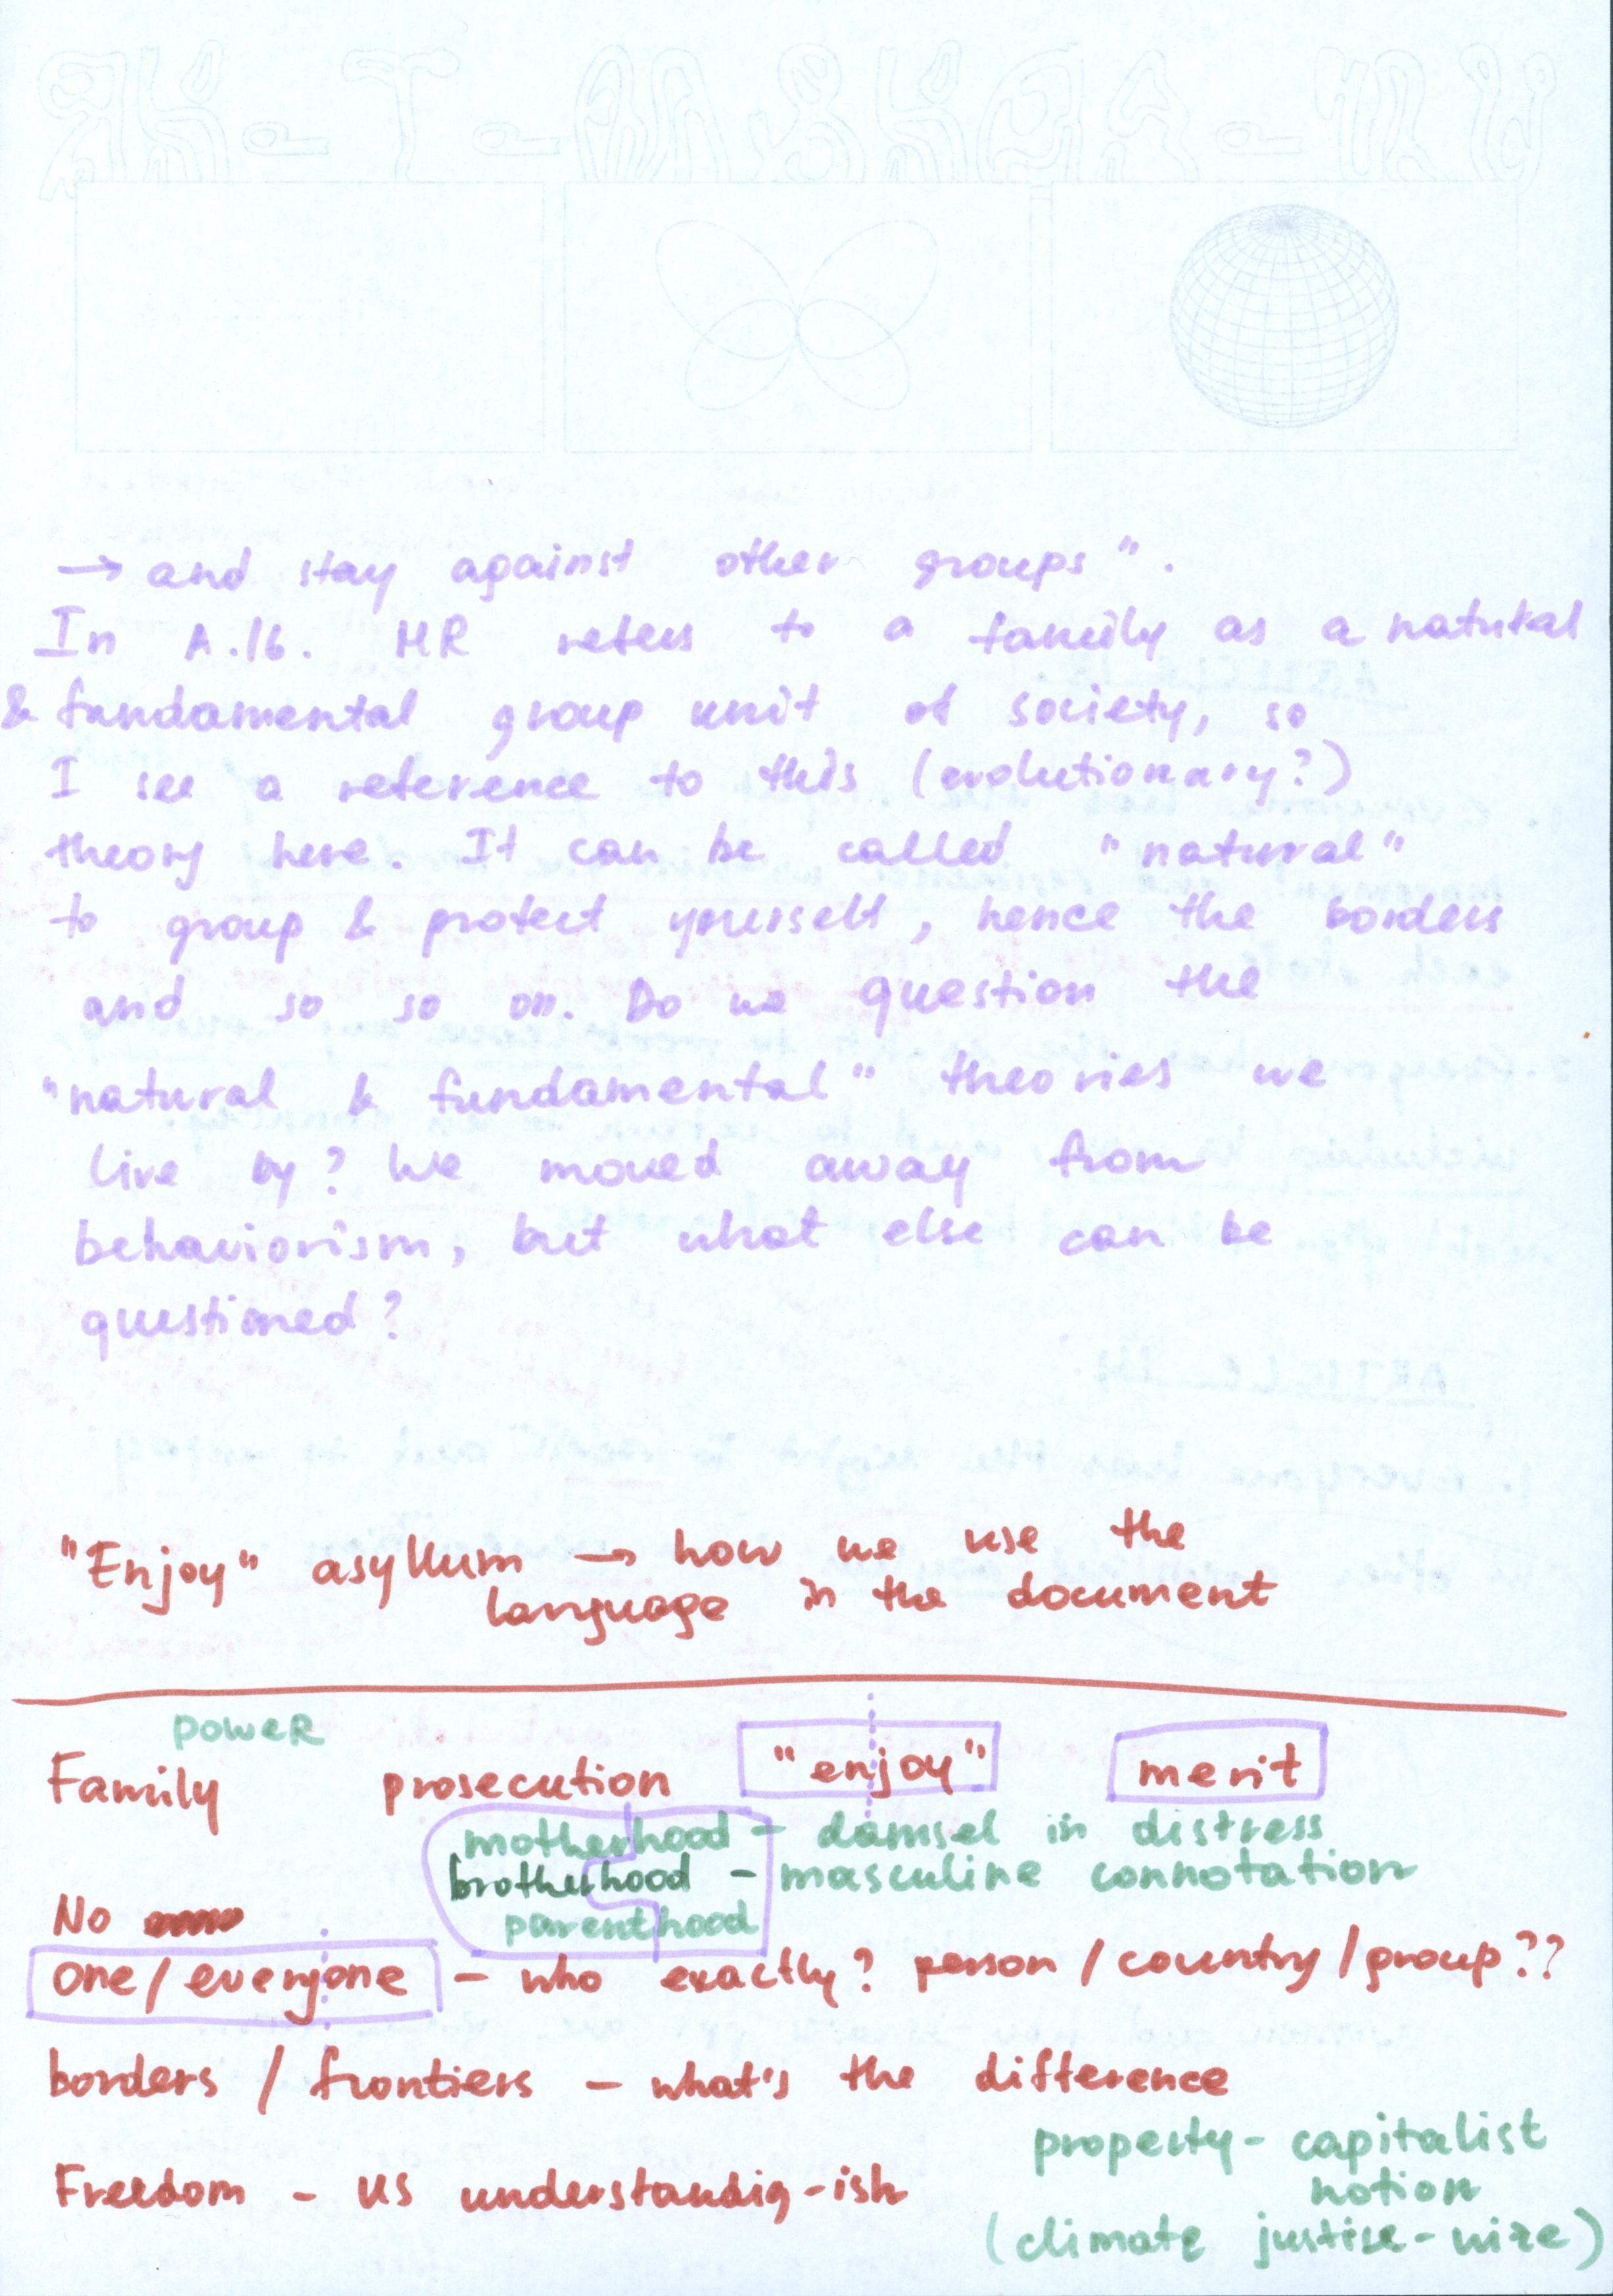 → and stay against other groups".
In A.16. HR refers to a family as a natural
& fundamental group unit of society, so
I see a reference to this (evolutionary?)
theory here. It can be called "natural"
to group & protect yourself, hence the borders
and so so on. Do we question the
"natural & fundamental" theories we
live by? We moved away from
behaviorism, but what else can be
questioned?
"Enjoy" asyllum → how we use the
language in the document
power
Family prosecution "enjoy" merit
motherhood - damsel in distress
brotherhood - masculine connotation
parenthood
No
one/everyone - who exactly? person / country / group??
borders / frontiers - what's the difference
property - capitalist
notion
Freedom - US understandig-ish
(climate justice-wize)